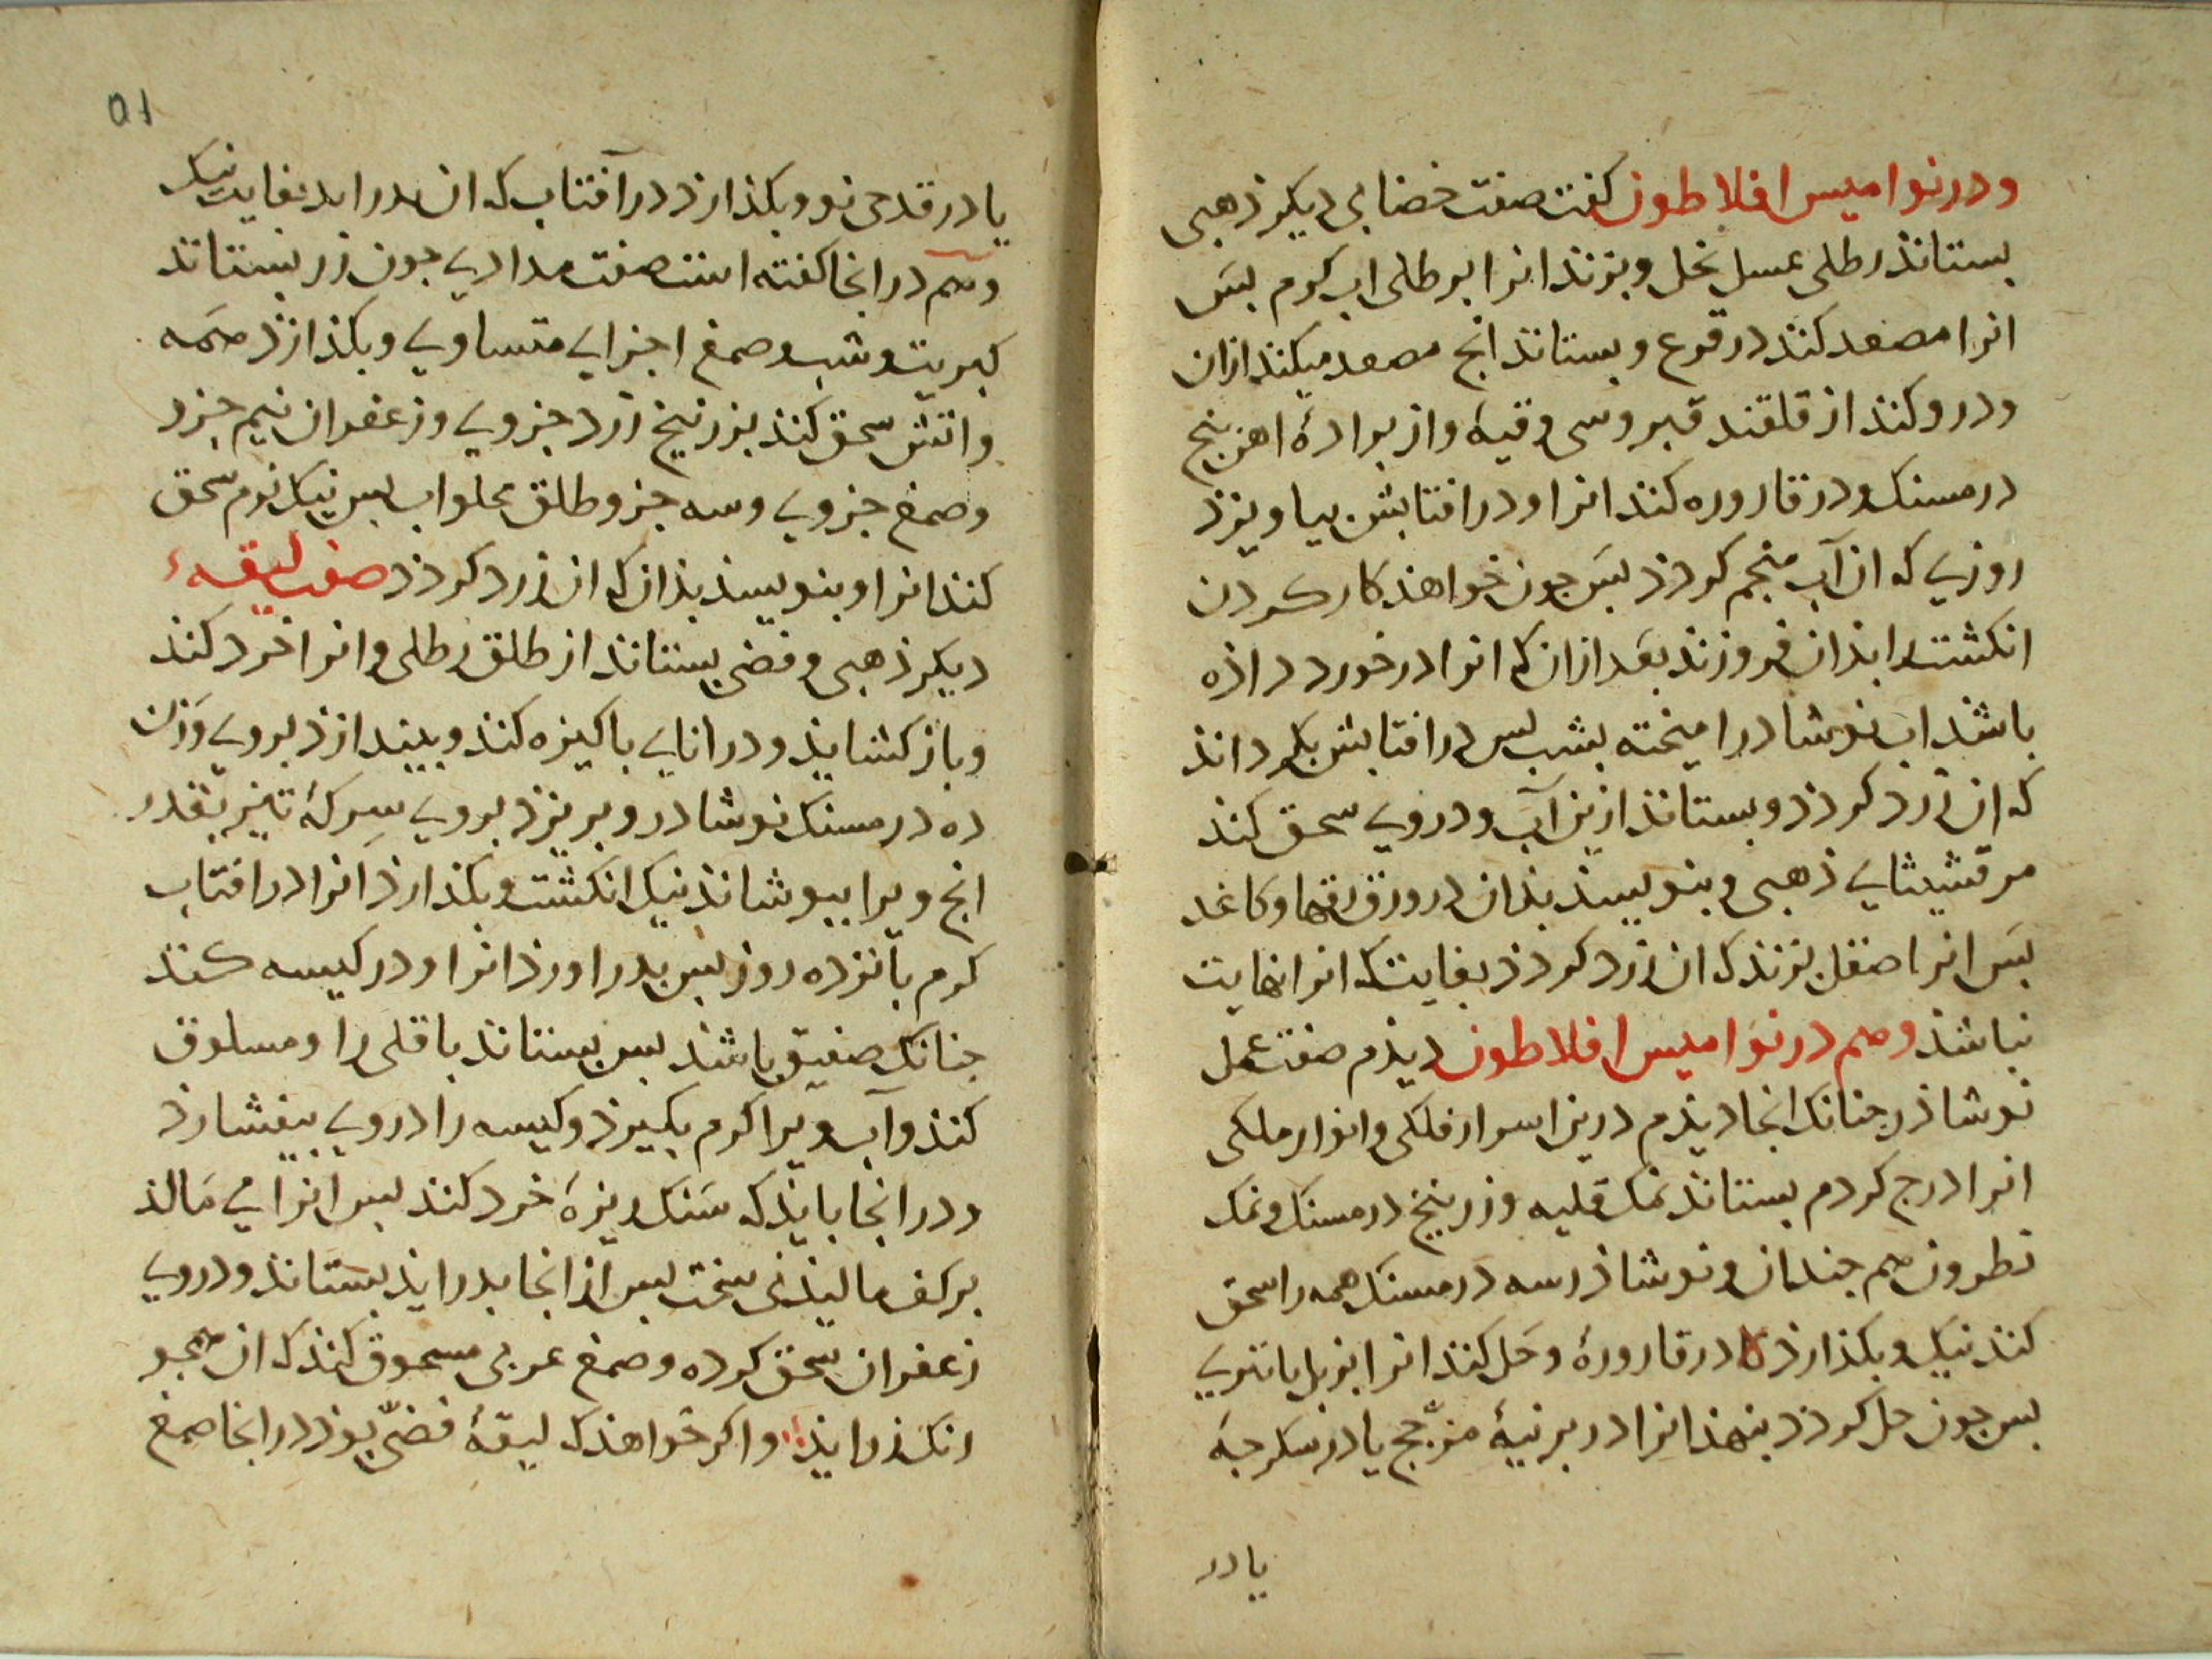 ودر نوامیس افلاطون کفت صفت خضابی دیکر ذهبی
بستانذ رطلی عسل نحل وبزند انرا برطلی اب کرم بس
انرا مصعد کند در قرع وبستانذ انج مصعد میکند ازان
ودرو کند از قلقند قبروسی وقیهٔ واز برادهٔ اهن بنج
درمسنک ودر قاروره کند انرا ودر افتابش بیاویزذ
روزی که ان آب منجم کردذ بس جون خواهذ کار کردن
انکشت را بذان فروزند بعد ازان که انرا در خورد داذه
باشذ اب نوشادر امیخته بشب بس در افتابش بکرداند
که ان زرد کردذ وبستانذ ازین آب ودروی سحق کند
مرقشیثای ذهبی وبنویسذ بذان در ورق رقها وکاغد
بس انرا صقل بزند که ان زرد کردذ بغایت که انرا نهایت
نباشذ وهم در نوامیس افلاطون دیذم صفت عمل
نوشاذر جنانک انجا دیذم درین اسرار فلکی وانوار ملکی
انرا درج کردم بستانذ نمک قلیه وزرنیخ درمسنک ونمک
نطرون هم جندان ونوشاذر سه درمسنک همه را سحق
کند نیک وبکذارذ در قارورهٔ وحل کند انرا بزبل یا تنوری
بس جون حل کردذ بنهذ انرا در برنیهٔ مزجج یا در سکرجه
یا در
۵۱
یا در قدحی نو وبکذارذ در آفتاب که ان بدر ابد بغایت نیک
وهم در انجا کفته است صفت مدادی جون زر بستانذ
کبریت وشب وصمغ اجزای متساوی وبکذازذ همه
واتش سحق کند بزرنیخ زرد جزوی وزعفران نیم جزو
وصمغ جزوی وسه جزو طلق محلوب بس نیک نرم سحق
کند انرا وبنویسذ بذان که ان زرد کردذ صفت لیقهٔ
دیکر ذهبی وفضی بستانذ از طلق رطلی وانرا خرد کند
وباز کشایذ ودر انای باکیزه کند وبیندازذ بروی وزن
ده درمسنک نوشادر وبریزذ بروی سرکهٔ تیز بقدر
انج ویرا ببوشانذ نیک انکشت وبکذارذ انرا در افتاب
کرم بانزده روز بس بدر اورذ انرا ودر کیسه کند
جنانک صفیق باشذ بس بستانذ باقلی را ومسلوق
کند وآب ویرا کرم بکیرذ وکیسه را دروی بیفشارذ
ودر انجا بایذ که سنک ریزهٔ خرد کند بس انرا می مالذ
بر کف مالیذنی سخت بس از انجا بدر ایذ بستانذ ودروی
زعفران سحق کرده وصمغ عربی مسحوق کند که ان همجو
رنک زر ایذ واکر خواهذ که لیقهٔ فضّی بوذ در انجا صمغ